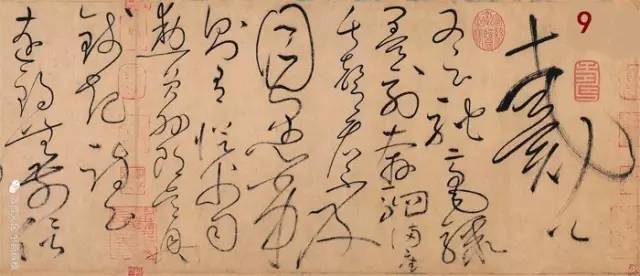 9
戴公
又云馳毫驟
墨列奔駟滿座
失聲看不及
目愚劣
則有從父司
勳員外郎吳興
錢起詩云
遠錫無前侶